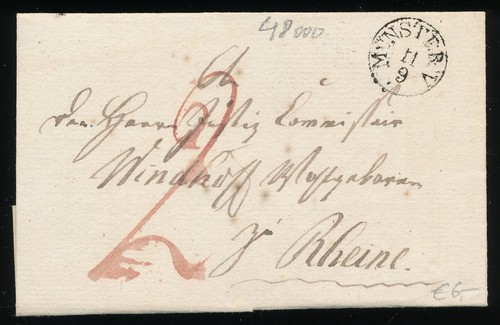 48000
MÜNSTER
11
9
2
Den Herrn Justiz Commissair
Windhoff Wohlgeboren
zu Rheine.
€6,-